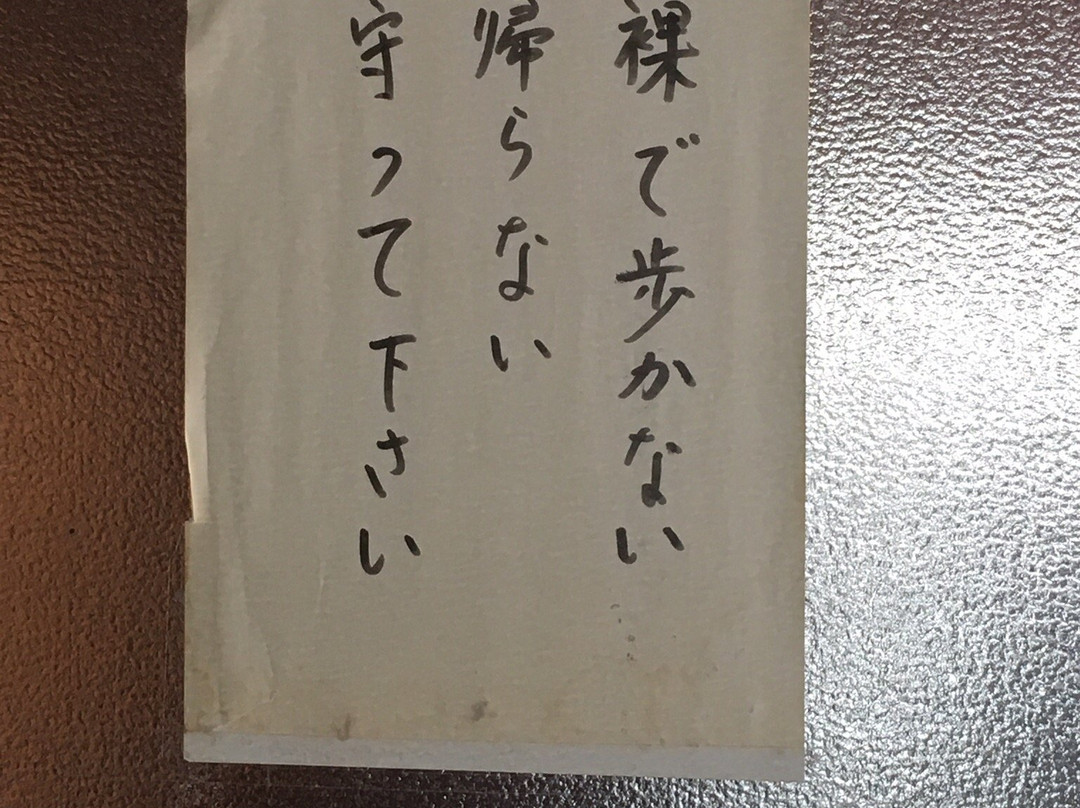 裸で歩かない
帰らない
守って下さい